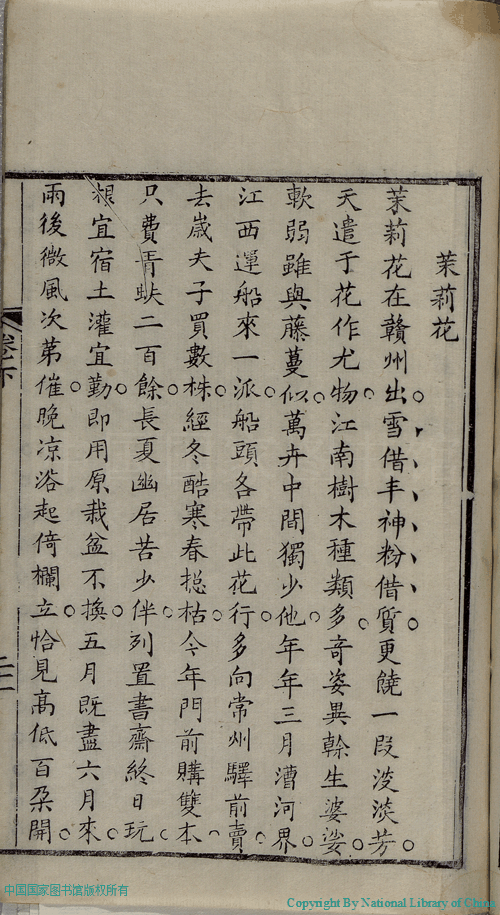 茉莉花
茉莉花在贛州出雪借丰神粉借質更饒一段淡淡芳
天遣于花作尤物江南樹木種類多奇姿異榦生婆娑
軟弱雖與藤蔓似萬卉中間獨少他年年三月漕河界
江西運船來一派船頭各帶此花行多向常州驛前賣
去歲夫子買數株經冬酷寒春捴枯今年門前購雙本
只費青蚨二百餘長夏幽居苦少伴列置書齋終日玩
根宜宿土灌宜勤即用原栽盆不換五月既盡六月來
雨後微風次第催晚凉浴起倚欄立恰見高低百朶開
卷下
二二
中国国家图书馆版权所有
Copyright By National Library of China